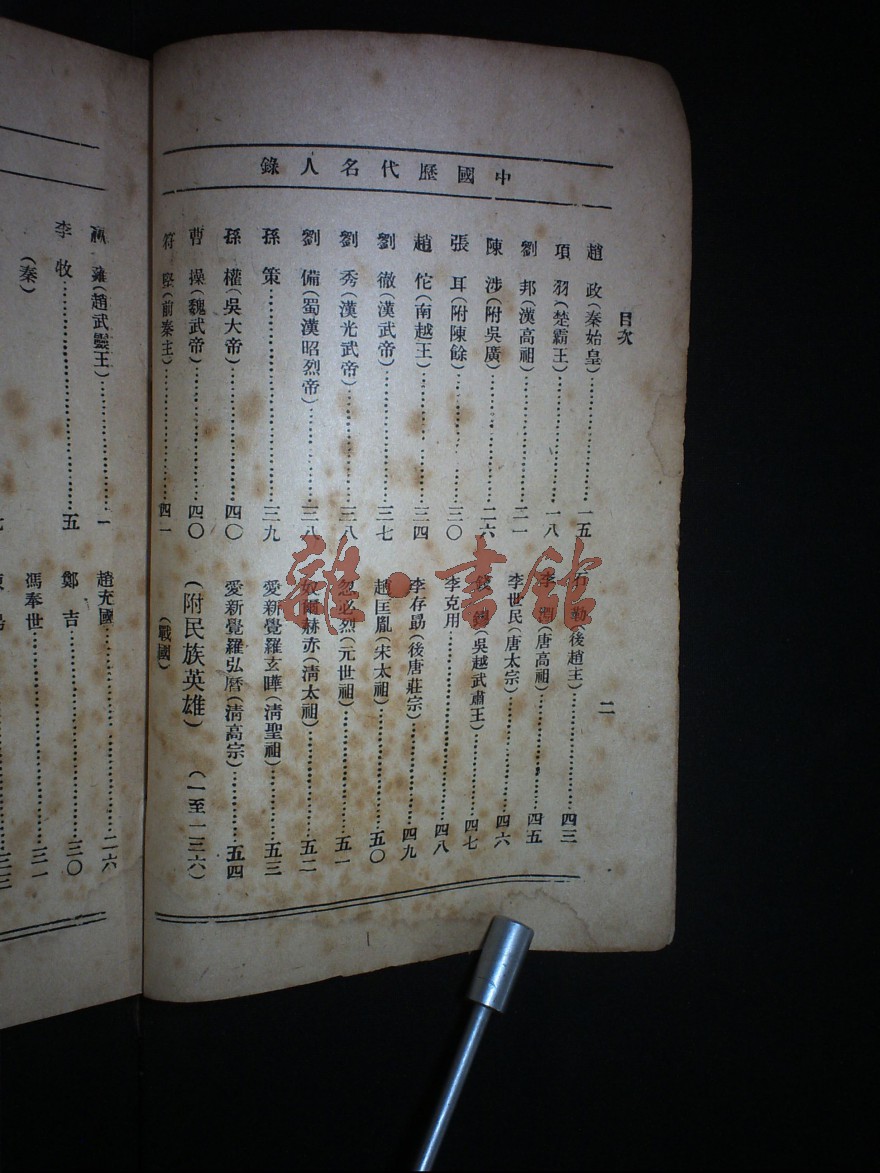 中國歷代名人錄
目次
二
趙政(秦始皇)……一五
項羽(楚霸王)……一八
劉邦(漢高祖)……二一
陳涉(附吳廣)……二六
張耳(附陳餘)……三〇
趙佗(南越王)……三四
劉徹(漢武帝)……三七
劉秀(漢光武帝)……三八
劉備(蜀漢昭烈帝)……三八
孫策……三九
孫權(吳大帝)……四〇
曹操(魏武帝)……四〇
符堅(前秦主)……四一
石勒(後趙主)……四三
李淵(唐高祖)……四五
李世民(唐太宗)……四六
錢鏐(吳越武肅王)……四七
李克用……四八
李存勗(後唐莊宗)……四九
趙匡胤(宋太祖)……五〇
忽必烈(元世祖)……五一
奴爾赫赤(清太祖)……五二
愛新覺羅玄曄(清聖祖)……五三
愛新覺羅弘曆(清高宗)……五四
(附民族英雄) (一至一三六)
(戰國)
雍(趙武靈王)……一
李牧……五
(秦)
趙充國……二六
鄭吉……三〇
馮奉世……三一
龍·書館